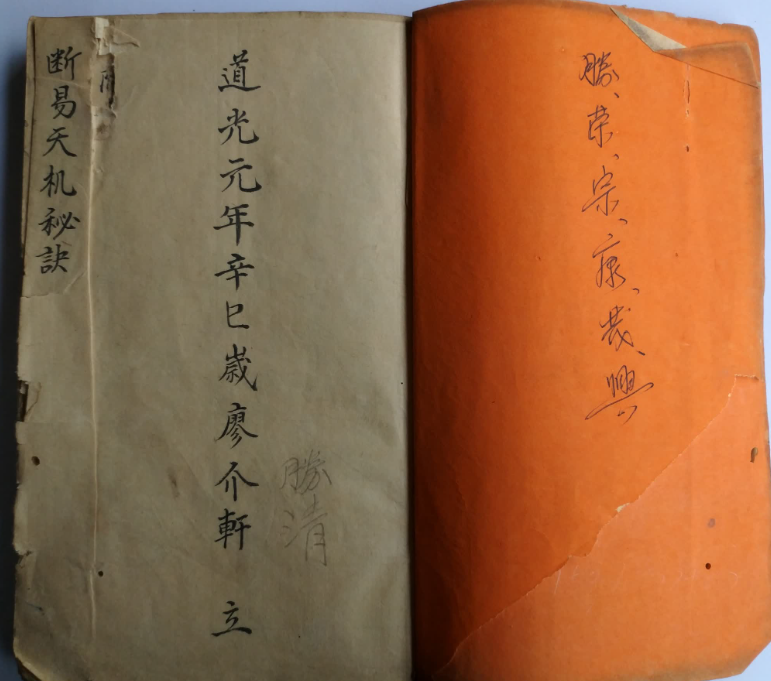 勝、荣、宗、康、哉、興
道光元年辛巳歲廖介軒 立
勝清
断易天机秘訣